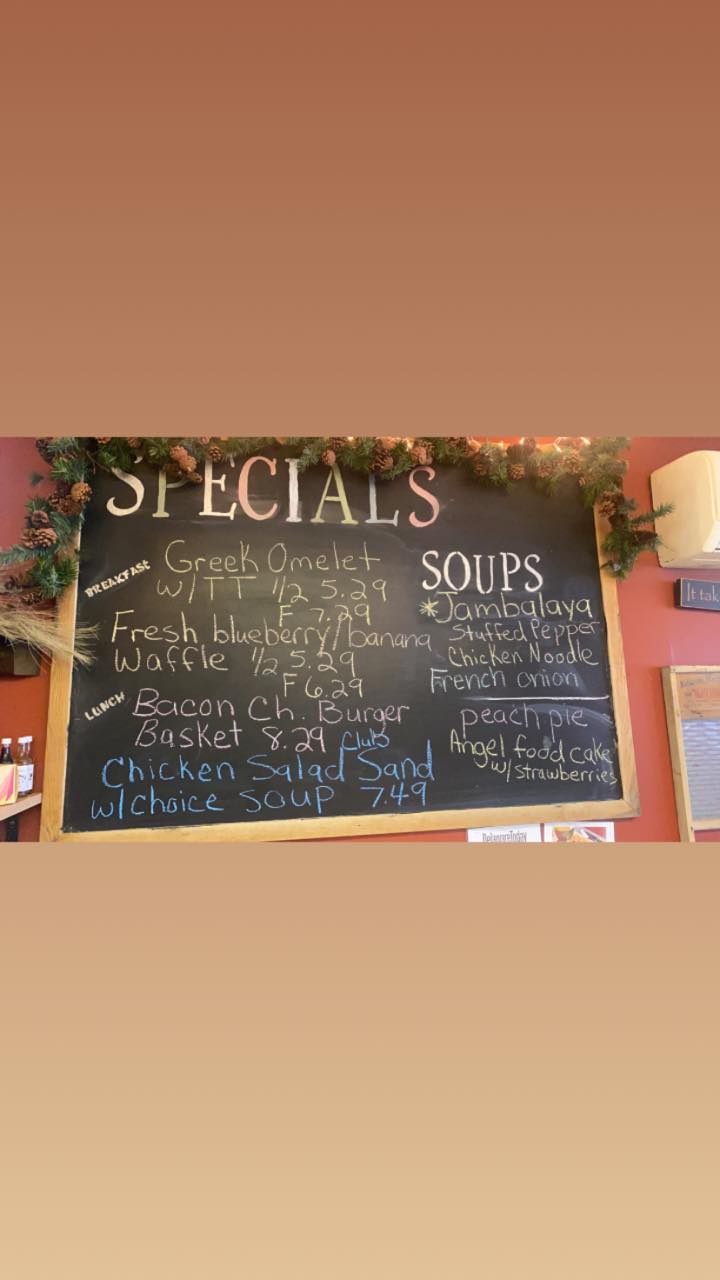 SPECIALS
BREAKFAST
Greek Omelet
w/TT 1/2 5.29
F 7.29
Fresh blueberry/banana
Waffle 1/2 5.29
F 6.29
LUNCH
Bacon Ch. Burger
Basket 8.29
Club
Chicken Salad Sand
w/choice SOUP 7.49
SOUPS
*Jambalaya
Stuffed Pepper
Chicken Noodle
French onion
peach pie
Angel food cake
w/strawberries
It tak
DelawareToday